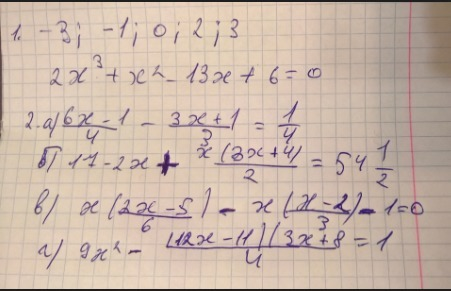 1. -3; -1; 0; 2; 3
2x³ + x² - 13x + 6 = 0
2. а) (6x - 1)/4 - (3x + 1)/3 = 1/4
б) 17 - 2x + x(3x + 4)/2 = 54 1/2
в) x(2x - 5)/6 - x(x - 2)/3 - 1 = 0
г) 9x² - (12x - 11)(3x + 8)/4 = 1